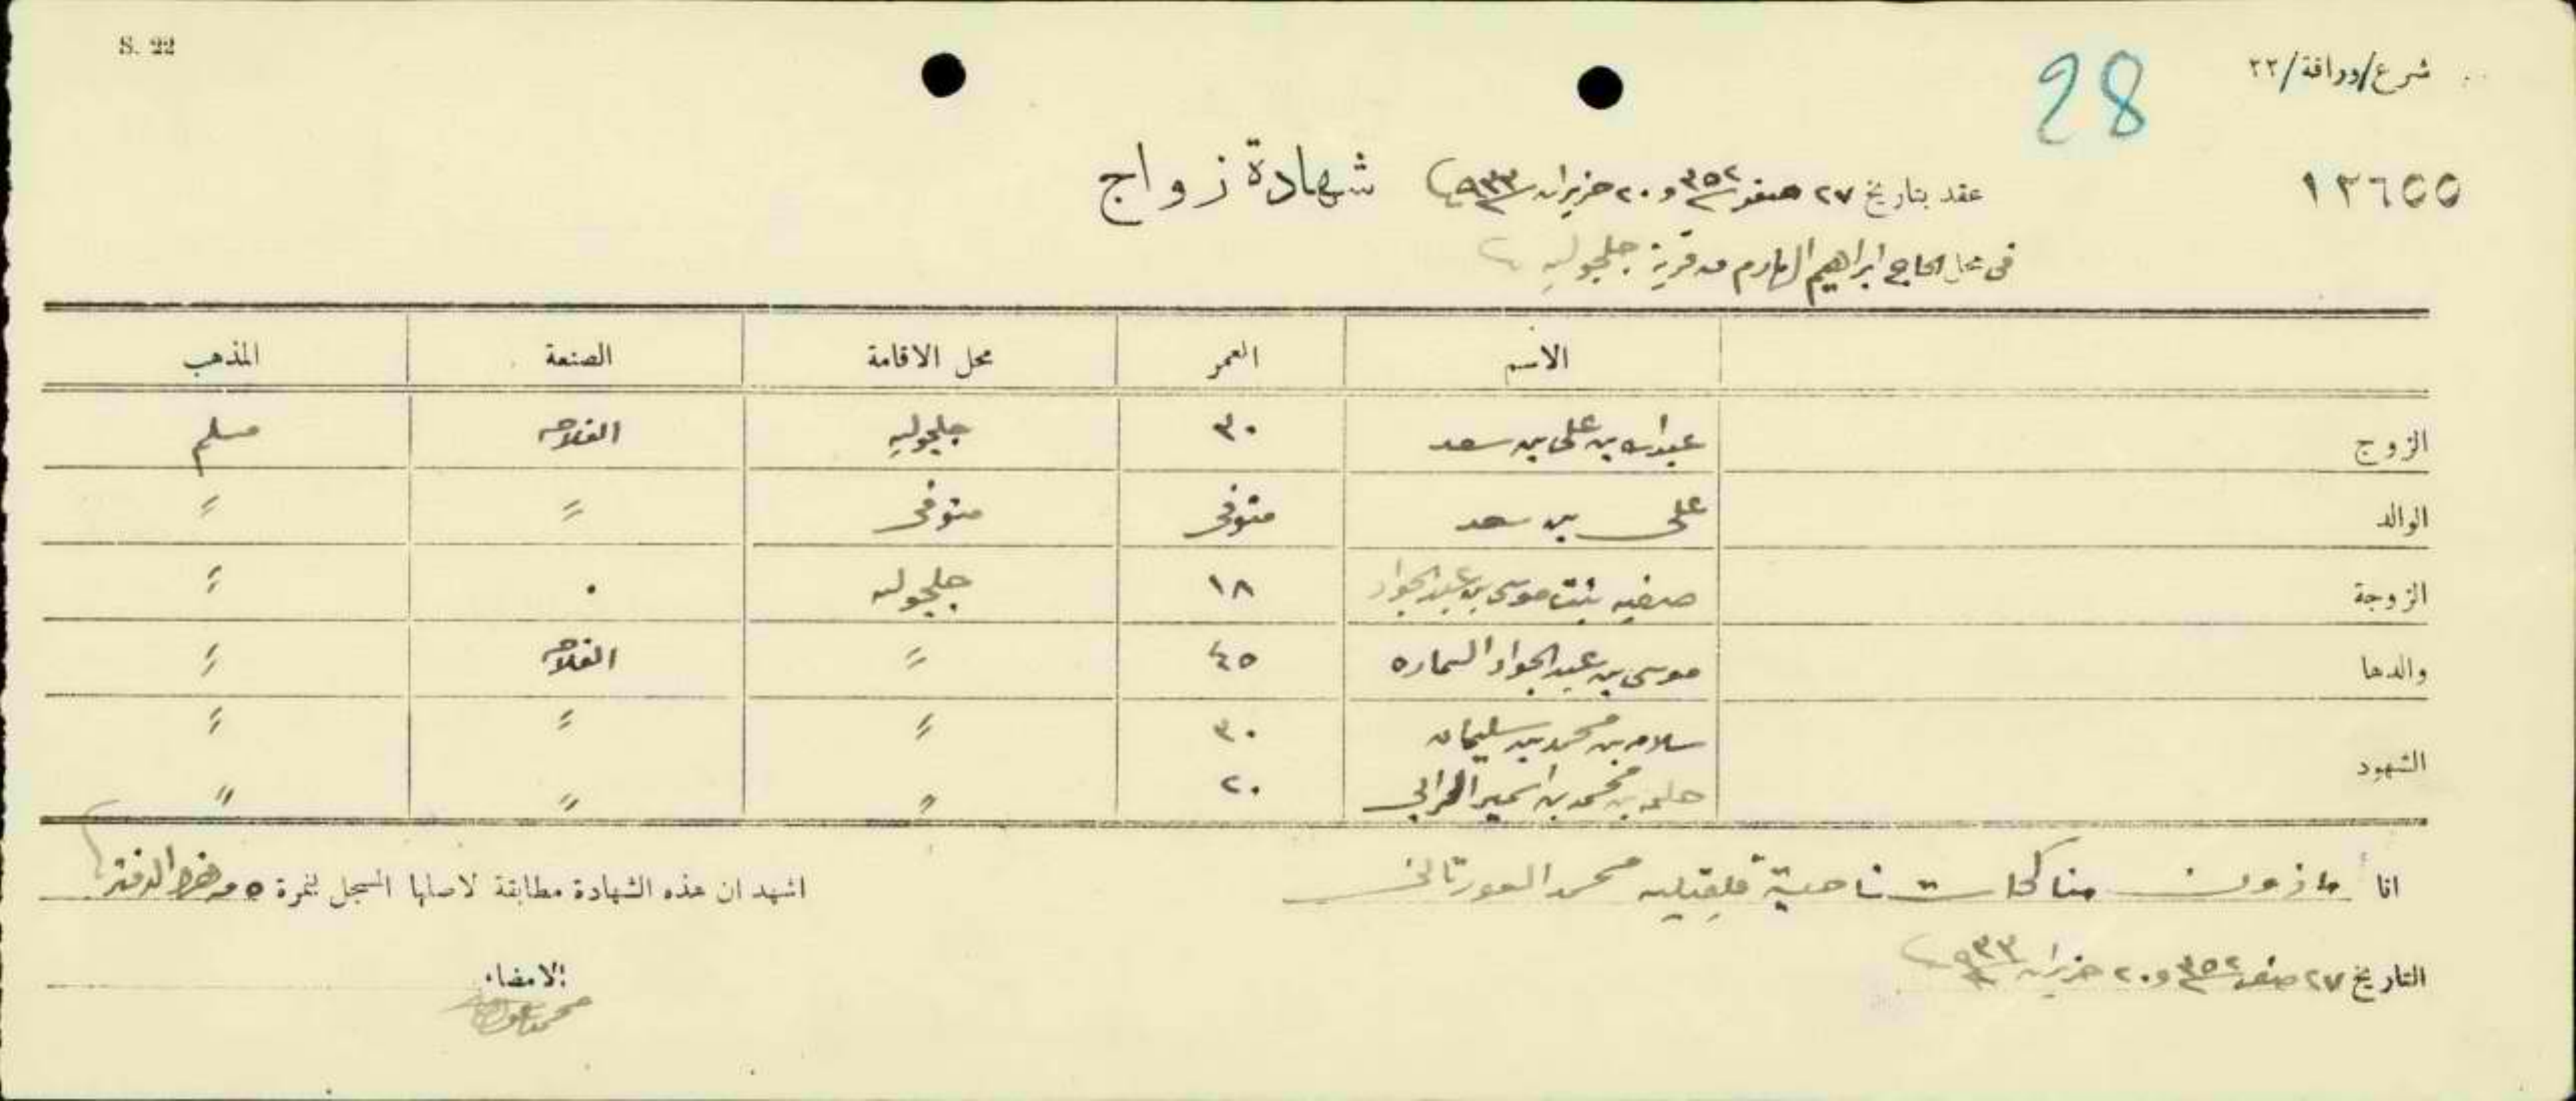 S. 22
شرع/وراقة/٢٢
28
١٣٦٥٥
شهادة زواج
عقد بتاريخ ٢٧ صفر ٣٥٢ و ٢٠ حزيران ٩٣٣
في محل الحاج ابراهيم من قرية جلجوليه
الاسم العمر محل الاقامة الصنعة المذهب
الزوج عبدالله بن علي بن سعد ٣٠ جلجوليه الفلاحه مسلم
الوالد علي بن سعد متوفى متوفى " "
الزوجة صفيه بنت موسى بن عبدالجواد ١٨ جلجوليه ٠ "
والدها موسى بن عبدالجواد السماره ٤٥ " الفلاحه "
الشهود سلامه بن محمد بن سليمان ٣٠ " " "
بن محمد بن ٢٠ " " "
انا مأذون مناكحات ناحية قلقيليه محمد
اشهد ان هذه الشهادة مطابقة لاصلها المسجل بنمرة ٥ من هذا الدفتر
التاريخ ٢٧ صفر ٣٥٢ و ٢٠ حزيران ٩٣٣
الامضاء